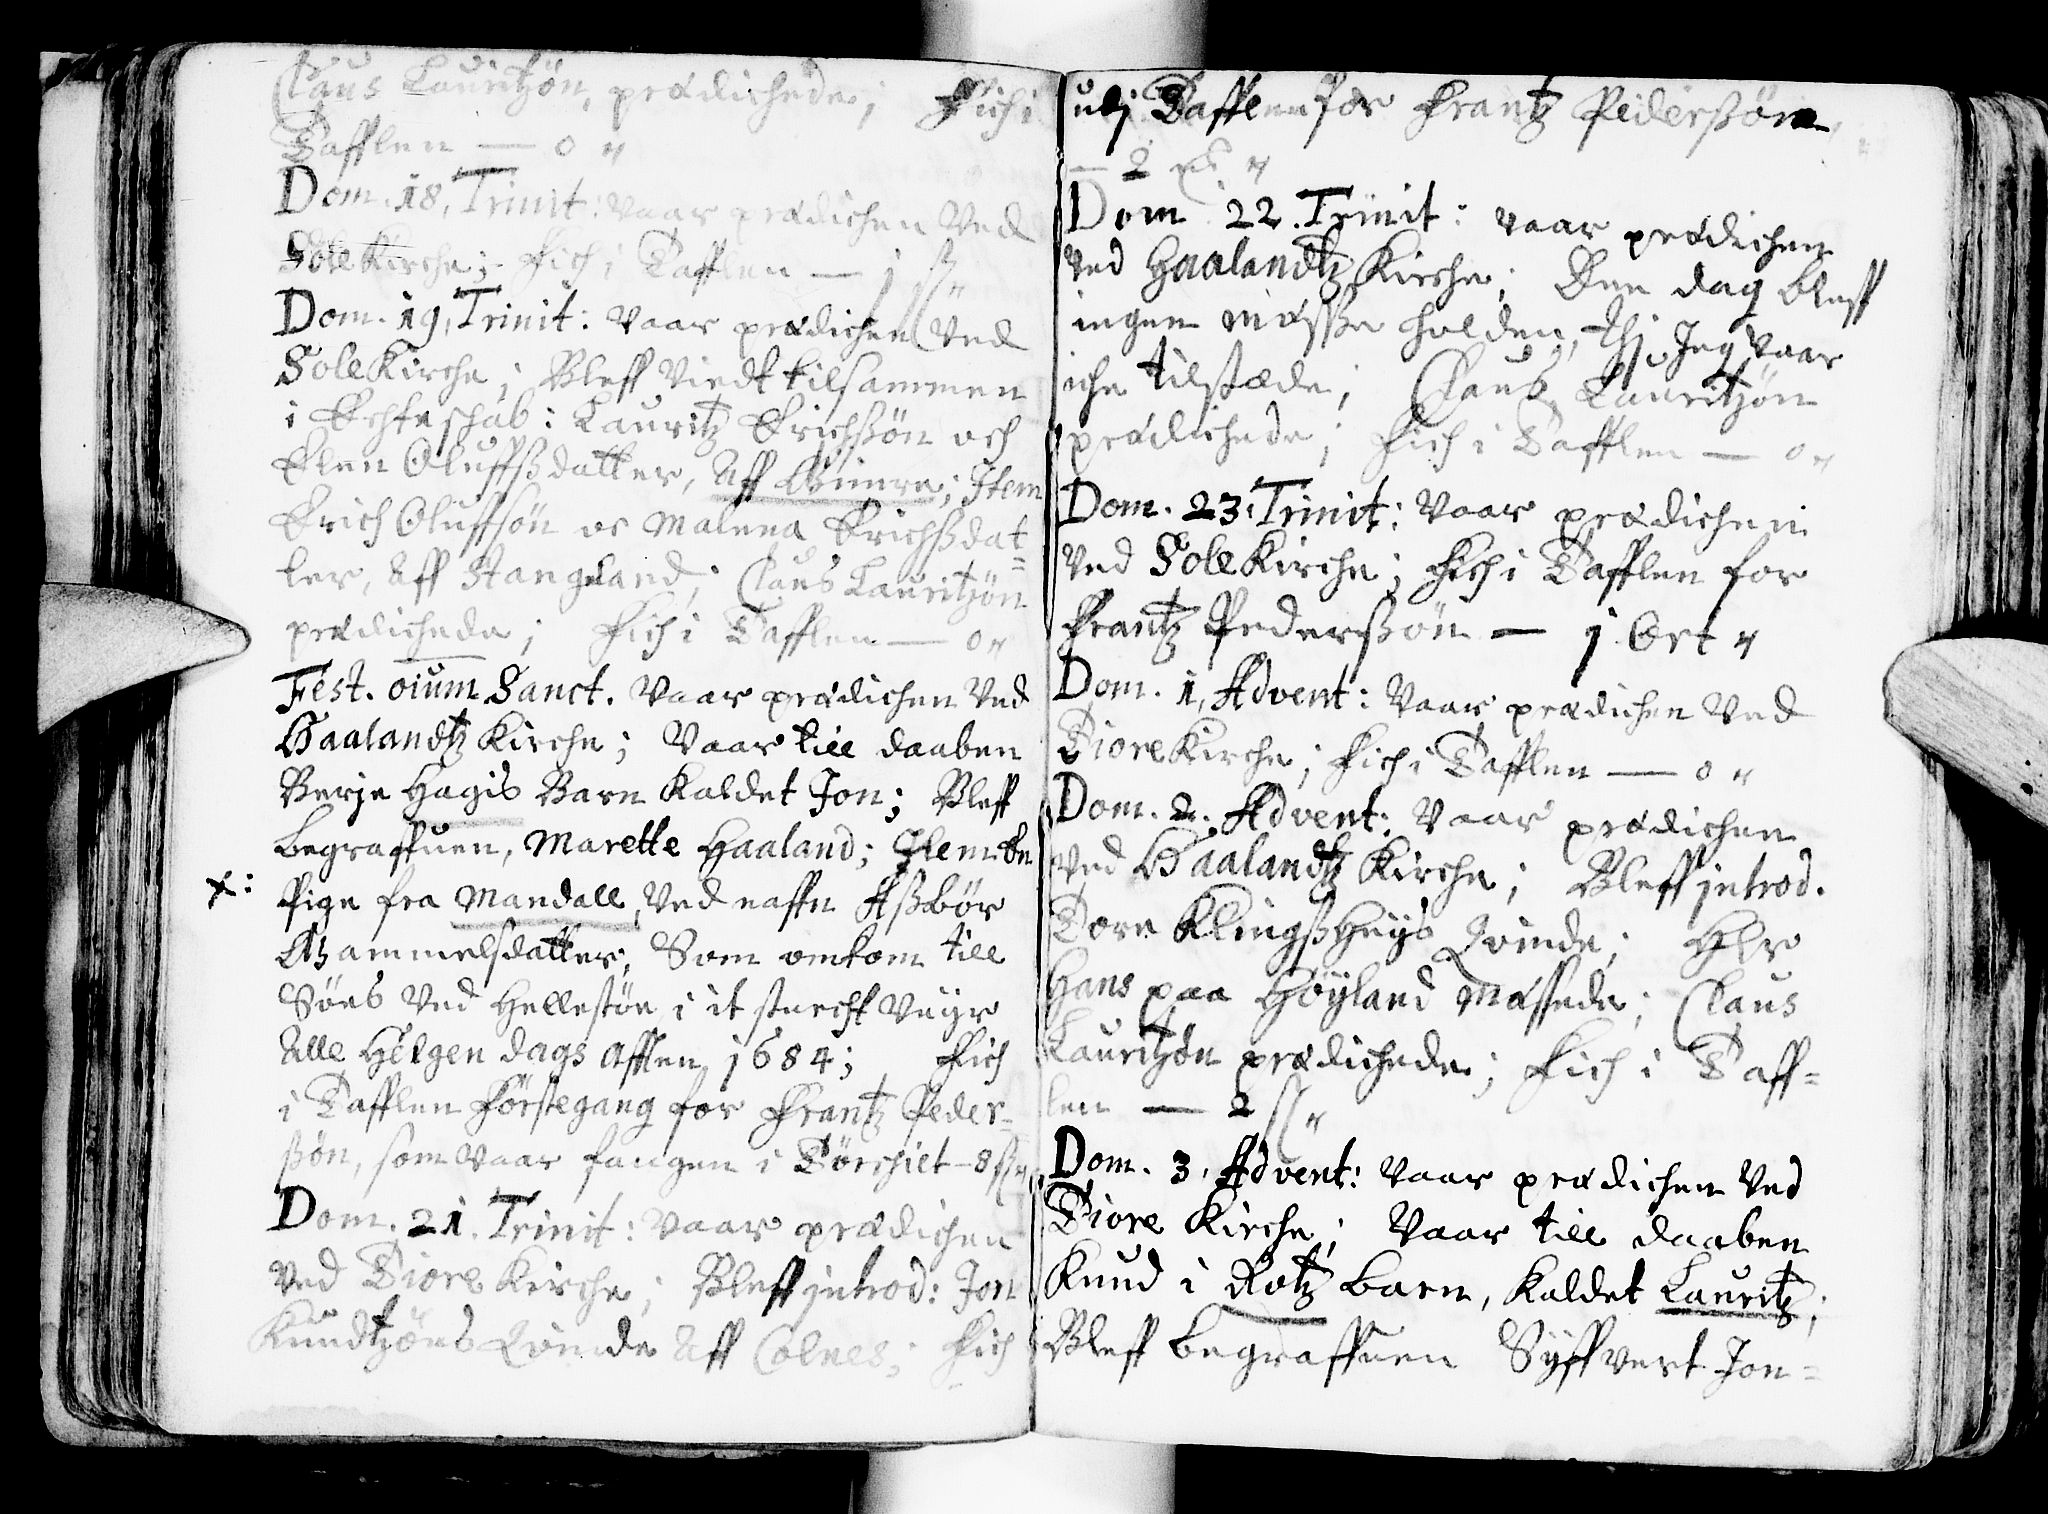 Claus Lauritzøn, prædichede; Fich i
Tafflen — 0 "
Dom. 18. Trinit: vaar prædichen Ved
Sole Kirche; Fich i Tafflen — j ß "
Dom. 19. Trinit: Vaar prædichen Ved
Sole Kirche; Bleff Viedt tilsammen
i Echteschab: Lauritz Erichßøn och
Elen Oluffsdatter, Aff Gimre; Item
Erich Oluffsøn oc Malena Erichßdat=
ter, Aff Stangeland; Claus Lauritzøn
prædichede; Fich i Tafflen — 0 "
Fest. oium Sanct. Vaar prædichen Ved
Haalandtz Kirche; Vaar till daaben
Berje Hagis Barn Kaldet Jon; Bleff
begraffuen, Marette Haaland; Item en
+: Pige fra Mandall, Ved naffn Aßbør
Gammelsdatter, Som omkom till
Søes Ved Hellestøe i it sterckt Veyr
Alle Helgen dags Afften 1684; Fich
i Tafflen førstegang for Frantz Peder=
ßøn, som vaar fangen i Tørchiet — 8 ß "
Dom. 21. Trinit: Vaar prædichen
Ved Tiore Kirche; Bleff introd: Jon
Knudtzøns Qvinde Aff Colnes; Fich
udj Tafflen for Frantz Pederßøn
— 2 "
Dom 22. Trinit: vaar prædichen
Ved Haalandtz Kirche; Den dag bleff
ingen Mæsse holden, thj Jeg Vaar
iche tilstæde; Claus Lauritzøn
prædichede; Fich i Tafflen — 0 "
Dom. 23. Trinit: Vaar prædichen
Ved Sole Kirche; Fich i Tafflen for
Frantz Pederßøn — j Ort "
Dom. 1. Advent: Vaar prædichen Ved
Tiore Kirche; Fich i Tafflen — 0 "
Dom. 2. Advent: Vaar prædichen
Ved Haalandtz Kirche; Bleff introd.
Tore Klingßheys Qvinde; Hlr
Hans paa Høyland Mæssede; Claus
Lauritzøn prædichede; Fich i Taff=
len — 2 ß "
Dom. 3. Advent: Vaar prædichen Ved
Tiore Kirche; Vaar till daaben
Knud i Rotz barn, Kaldet Lauritz;
Bleff begraffuen Syffvert Jon=